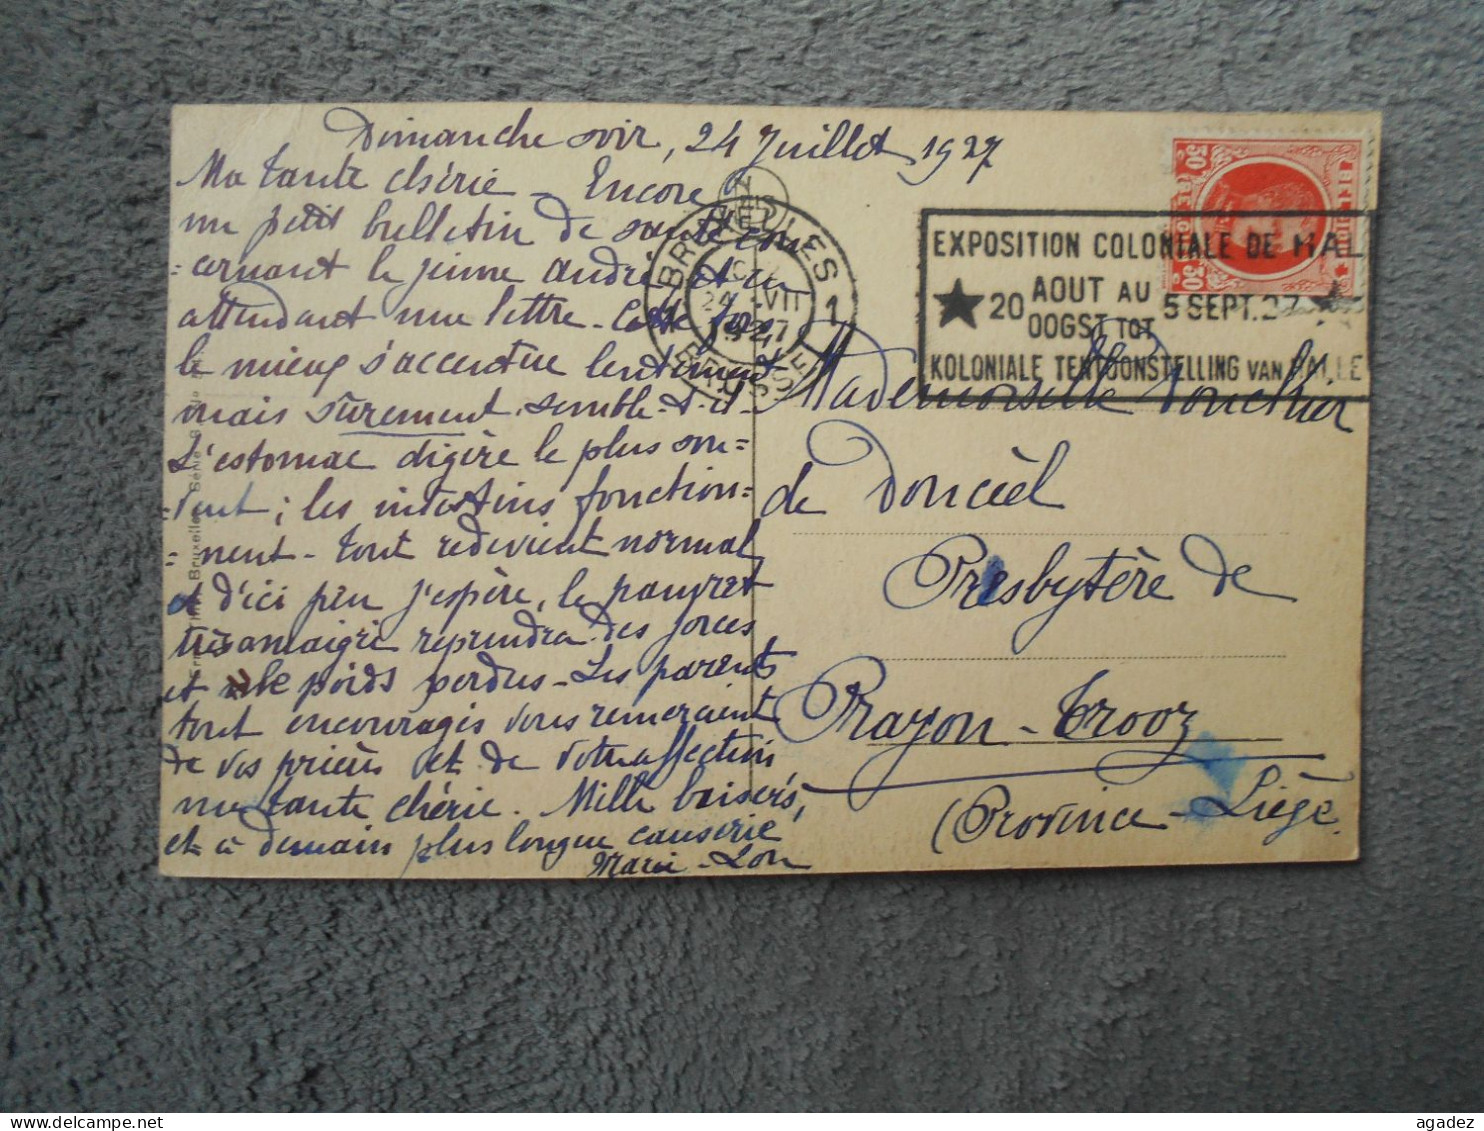 Dimanche soir, 24 Juillet 1927
Ma tante chérie - Encore
un petit bulletin de santé con
=cernant le jeune André et en
attendant une lettre. Cette fois,
le mieux s'accentue lentement
mais sûrement semble-t-il.
L'estomac digère le plus sou=
=vent; les intestins fonction=
=nent - tout redevient normal
et d'ici peu j'espère, le pauvret
très amaigri reprendra des forces
et le poids perdus - Les parents
tout encouragés vous remercient
de vos prières et de votre affection
ma tante chérie. Mille baisers,
et à demain plus longue causerie
Marie-Lou
BRUXELLES 1
24 VII
1927
BRUSSEL
EXPOSITION COLONIALE DE HAL
20 AOUT AU 5 SEPT. 27
OOGST TOT
KOLONIALE TENTOONSTELLING VAN HALLE
Mademoiselle
de Donceel
Presbytère de
Prayon-Trooz
(Province - Liège
agadez